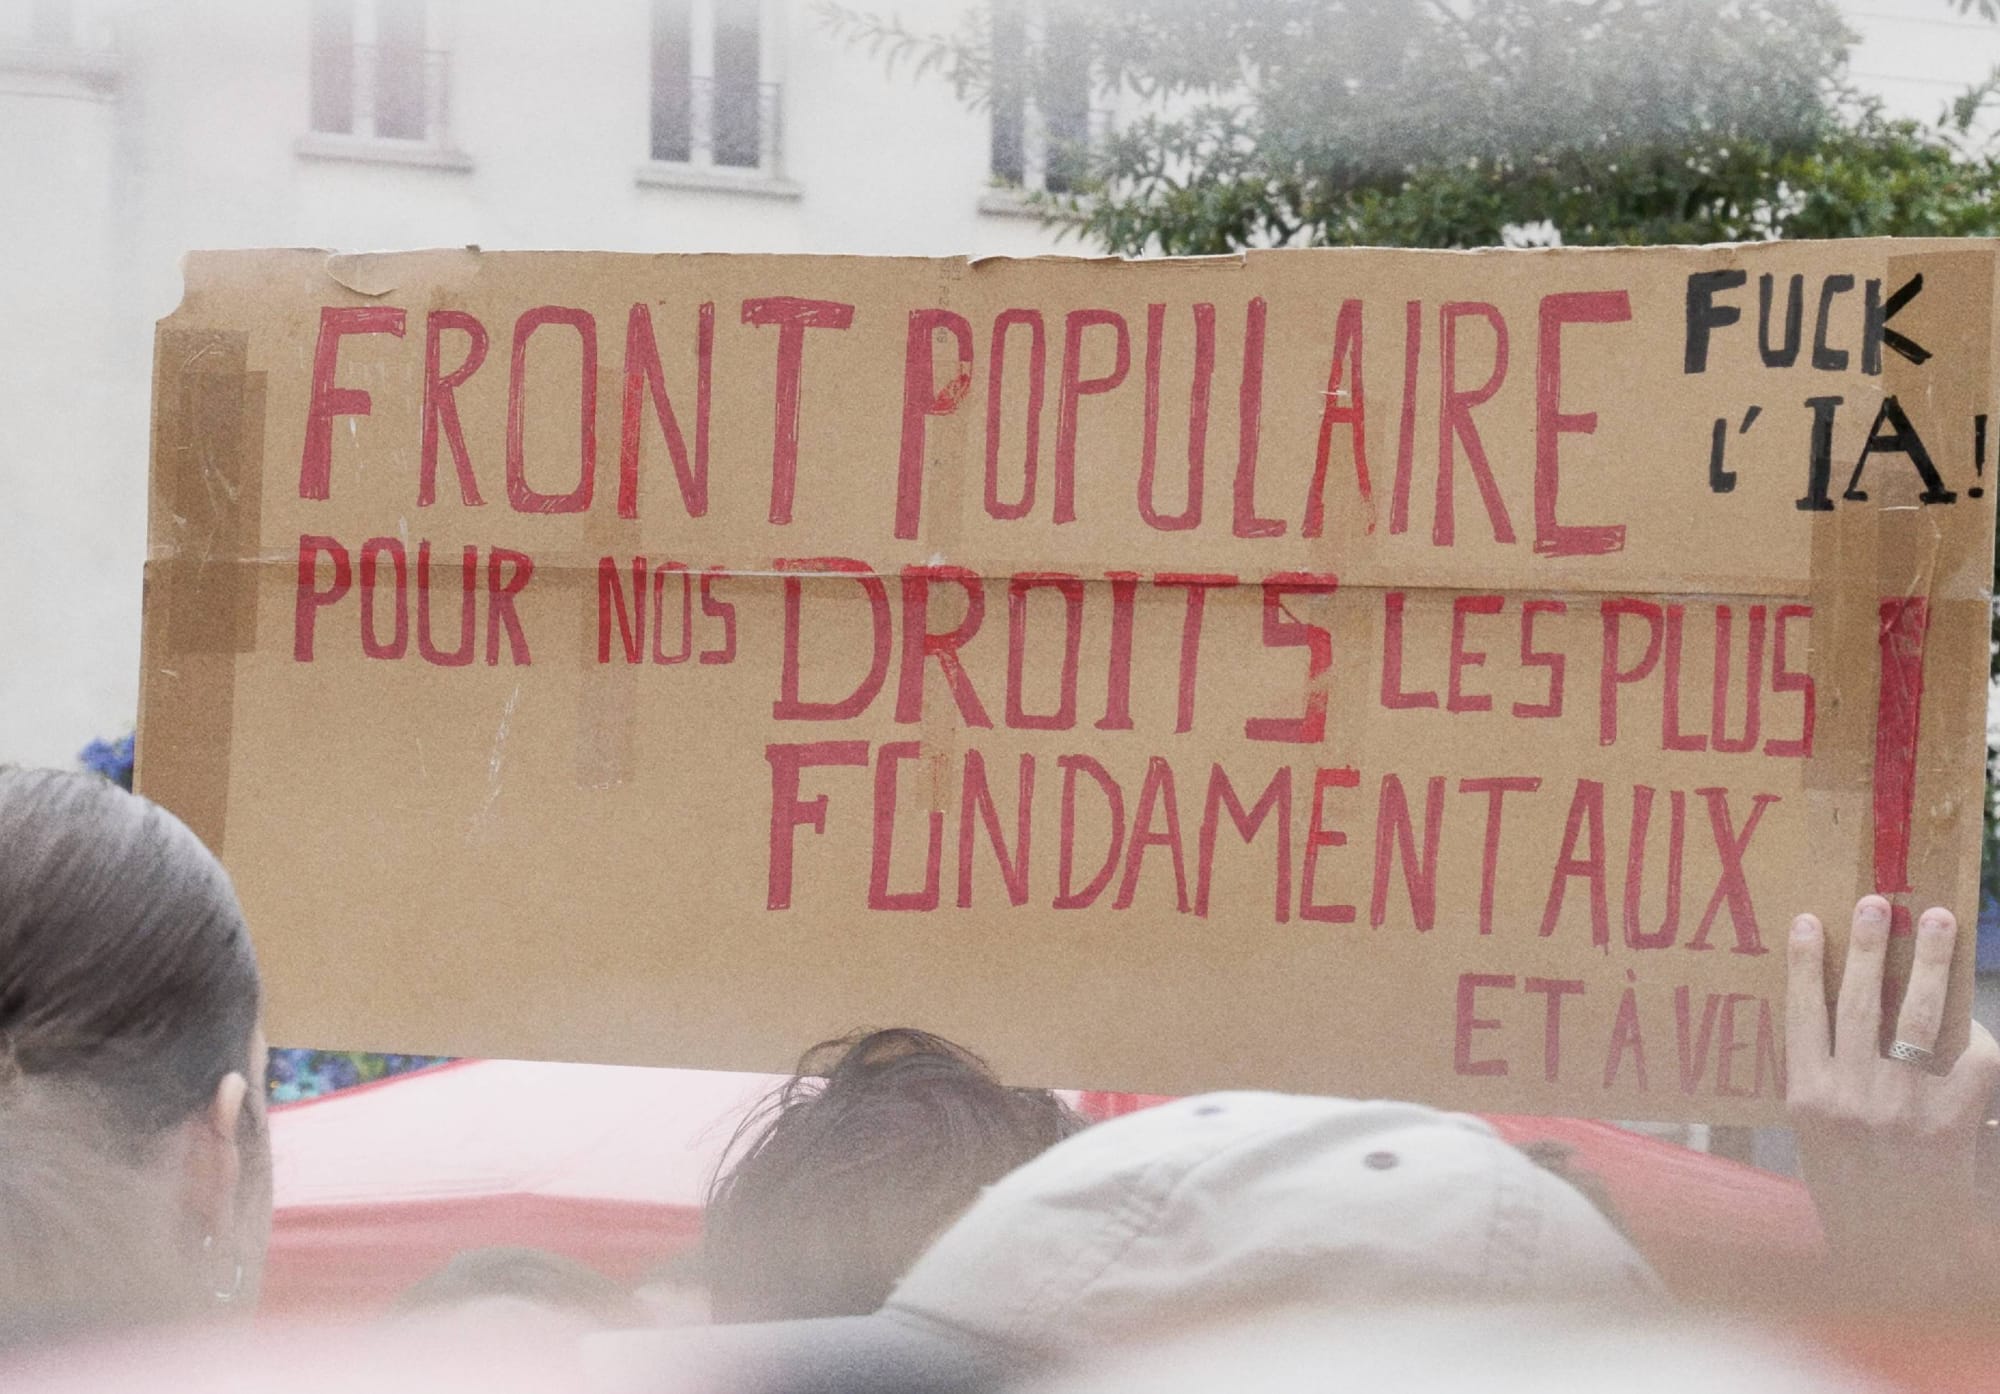 FRONT POPULAIRE
FUCK
L'IA!
POUR NOS DROITS LES PLUS
FONDAMENTAUX !
ET À VEN